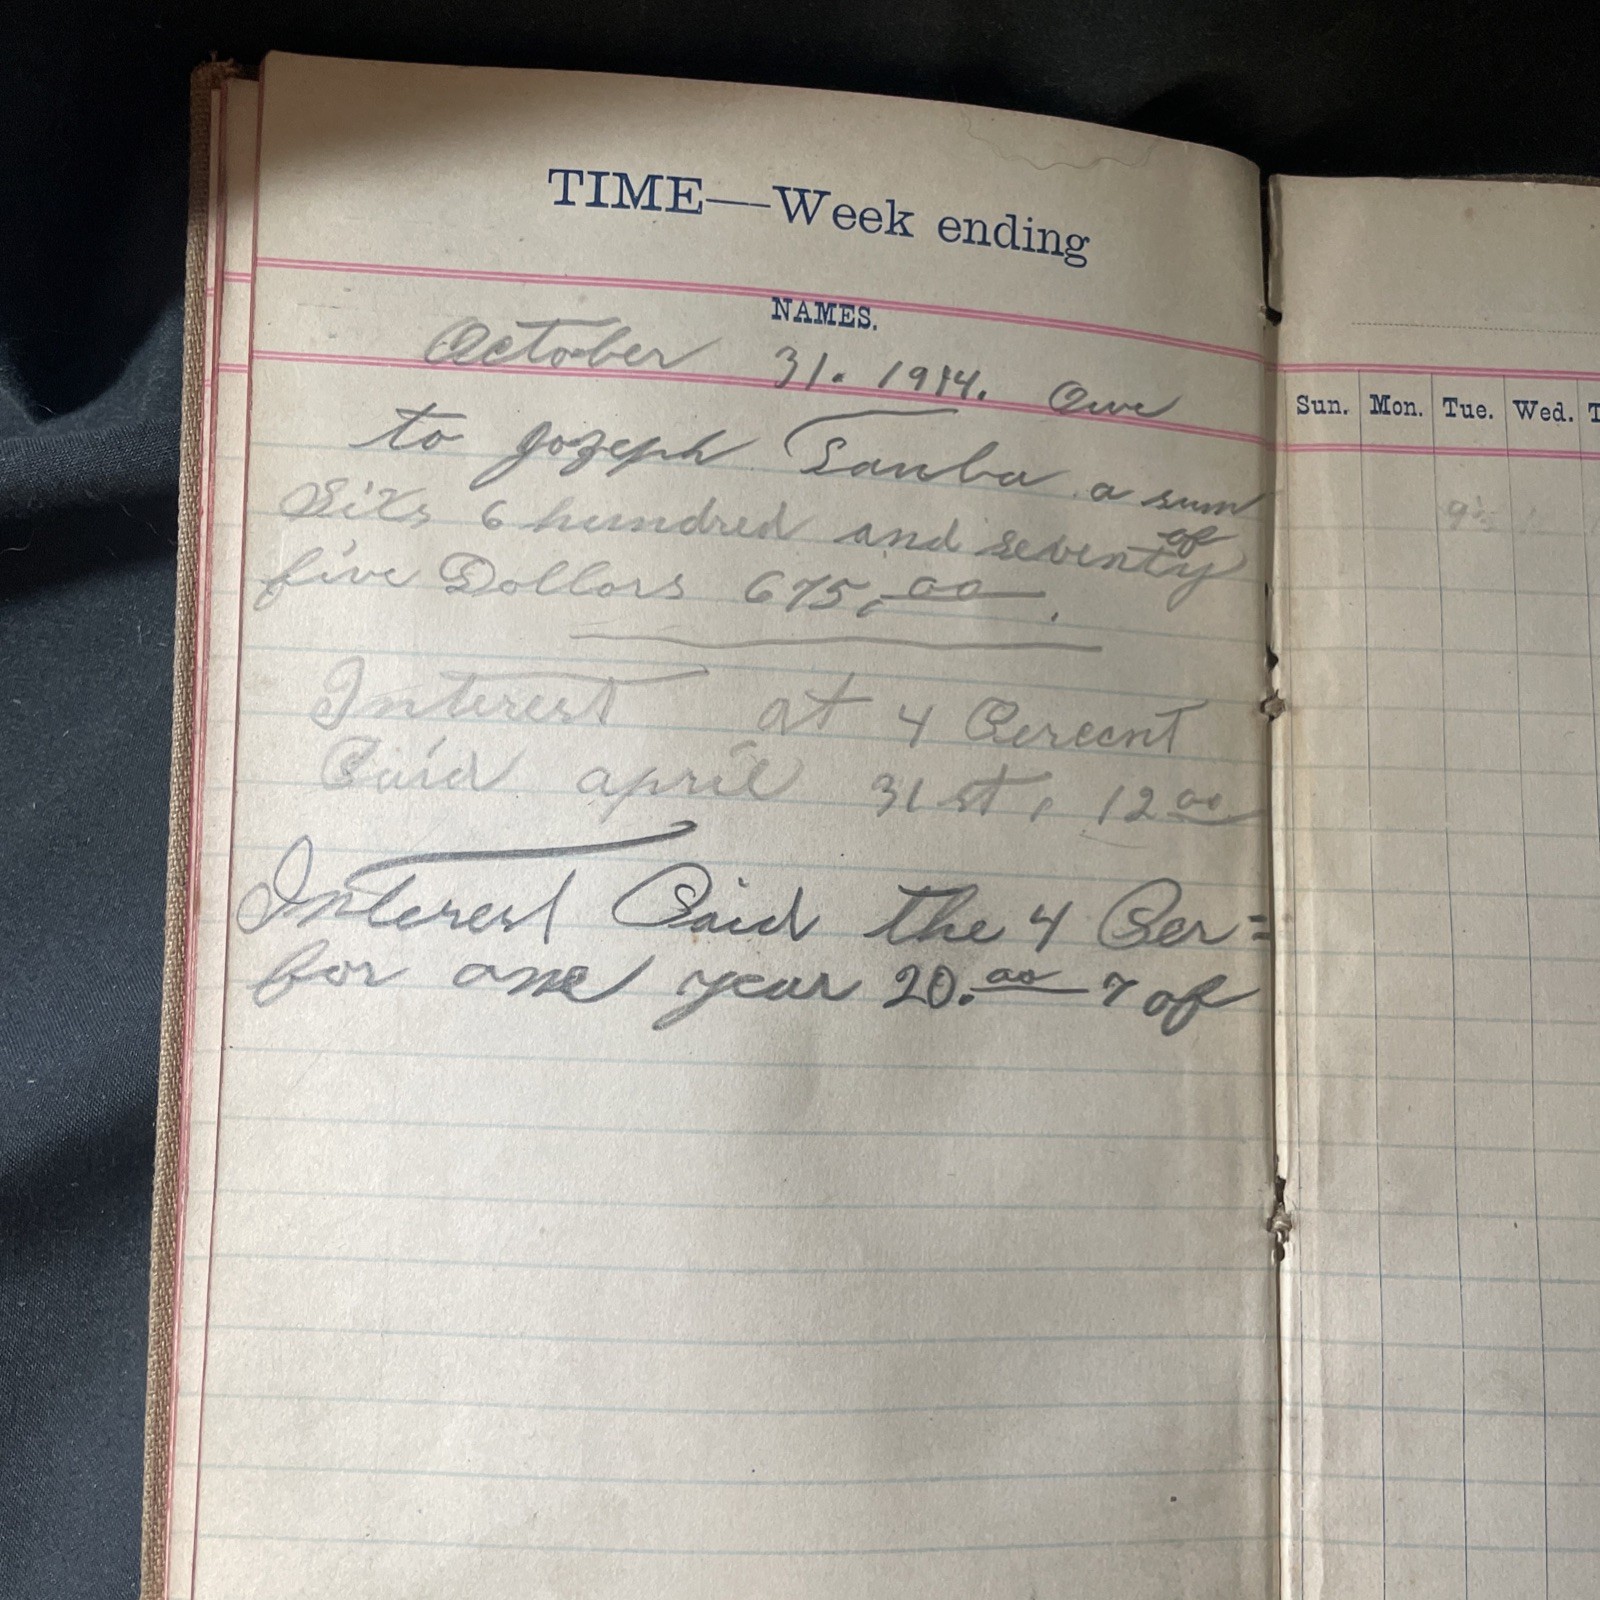 TIME—Week ending
NAMES.
October 31. 1914. Owe
to Jozeph a sum
of
Sixs 6 hundred and seventy
five Dollars 675,00.
Interest at 4 Percent
Paid april 31st, 12 00
Interest Paid the 4 Per=
for one year 20.00 of
Sun. Mon. Tue. Wed. T
9½